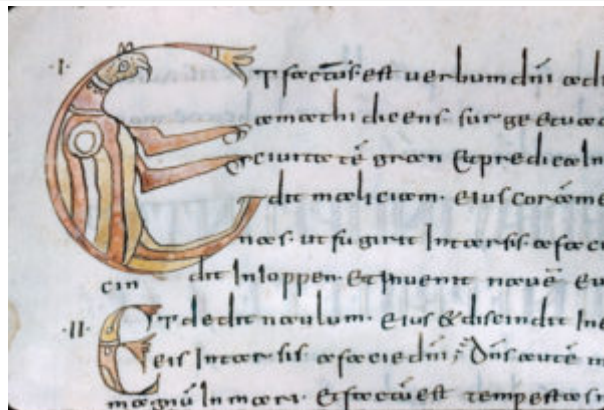 ·I· ET factus est uerbum dni adi
amathi dicens. surge et uad
ciuitatē gran Et predica In
dit maliciam. eius corāme
nas. ut fugirit Intarsis afaci
dit Inloppen. Et Inuenit nauē eu
·II· ET dedit naulum. eius & discindit Ine
eis Intarsis afacie dni; Dns autē m
magnū In mari. Et factū est tempestas